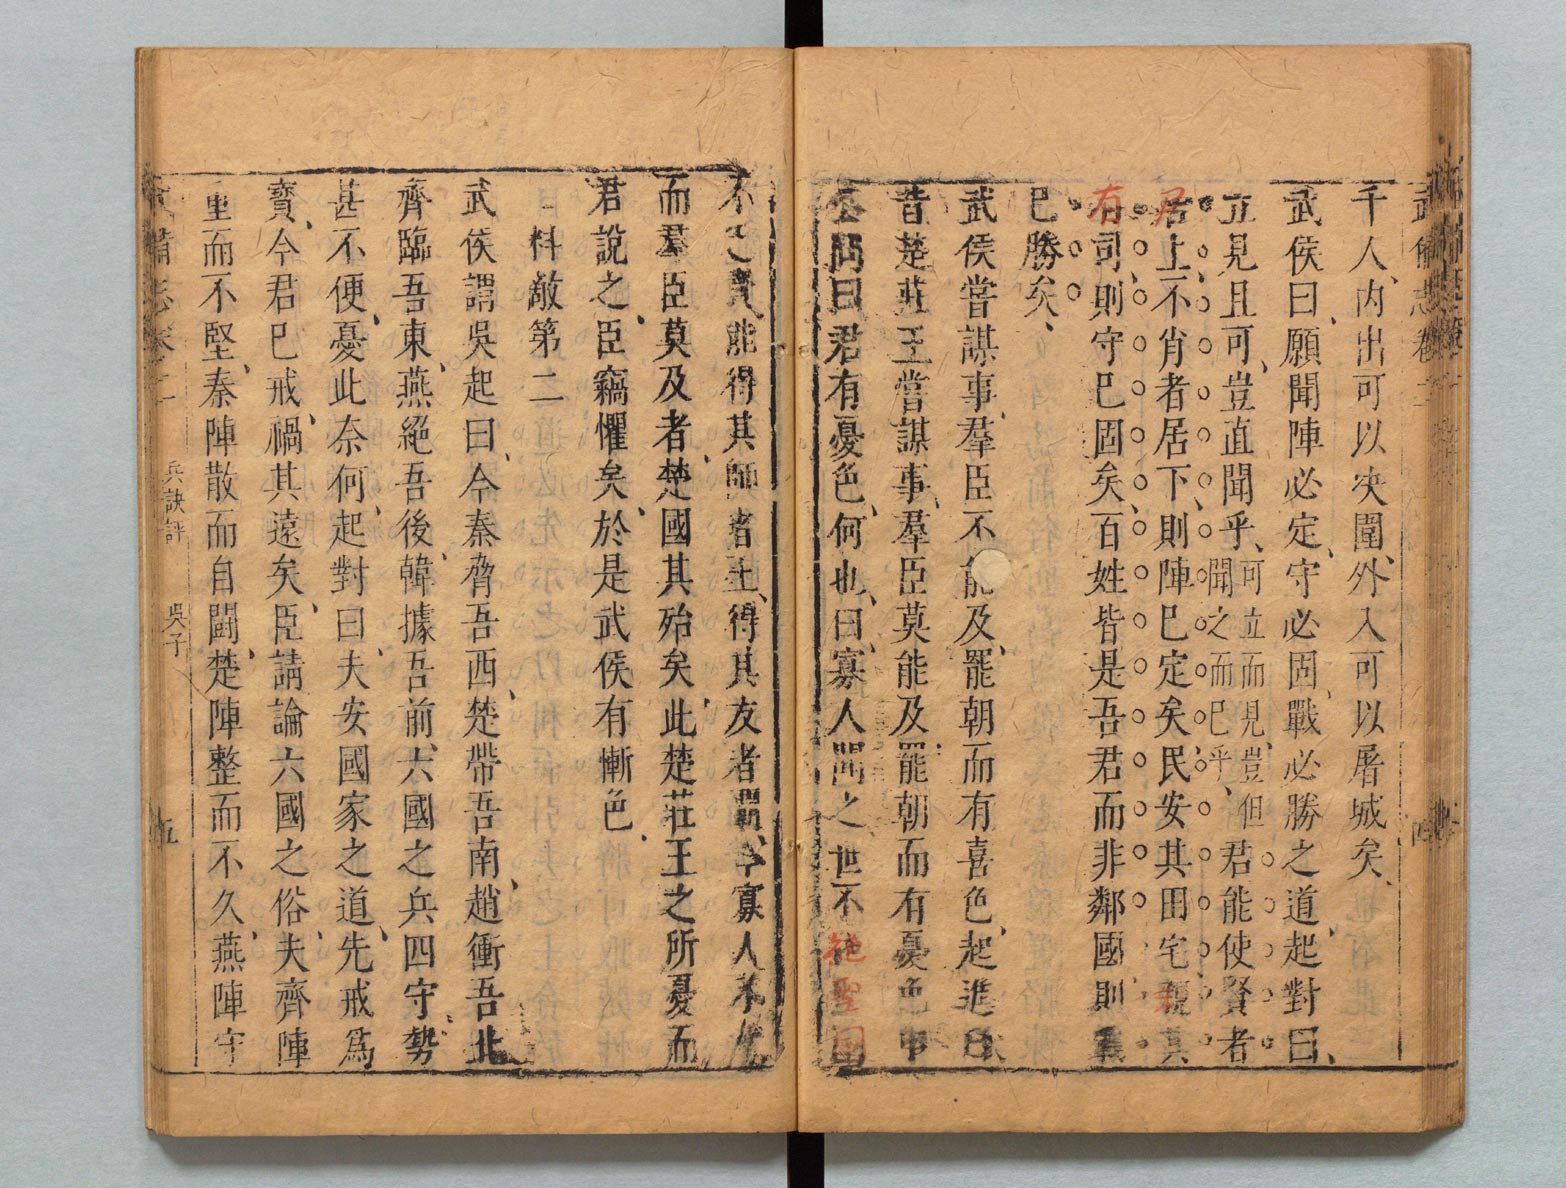 武備志卷二
四
千人、內出可以決圍、外入可以屠城矣、
武侯曰、願聞陣必定、守必固、戰必勝之道、起對曰、
立見且可、豈直聞乎、
可立而見、豈但
聞之而已乎、
君能使賢者
居上、不肖者居下、則陣已定矣、民安其田宅、親其
有司、則守已固矣、百姓皆是吾君而非鄰國、則戰
已勝矣、
武侯嘗謀事、羣臣不能及、罷朝而有喜色、起進曰、
昔楚莊王嘗謀事、羣臣莫能及、罷朝而有憂色、申
公問曰、君有憂色、何也、曰、寡人聞之、世不絕聖、國
不乏賢、能得其師者王、得其友者霸、今寡人不才
而羣臣莫及者、楚國其殆矣、此楚莊王之所憂而
君說之、臣竊懼矣、於是武侯有慚色、
料敵第二
武侯謂吳起曰、今秦脅吾西、楚帶吾南、趙衝吾北、
齊臨吾東、燕絕吾後、韓據吾前、六國之兵四守、勢
甚不便、憂此奈何、起對曰、夫安國家之道、先戒爲
寶、今君已戒、禍其遠矣、臣請論六國之俗、夫齊陣
重而不堅、秦陣散而自鬭、楚陣整而不久、燕陣守
武備志卷二
兵訣評
吳子
五